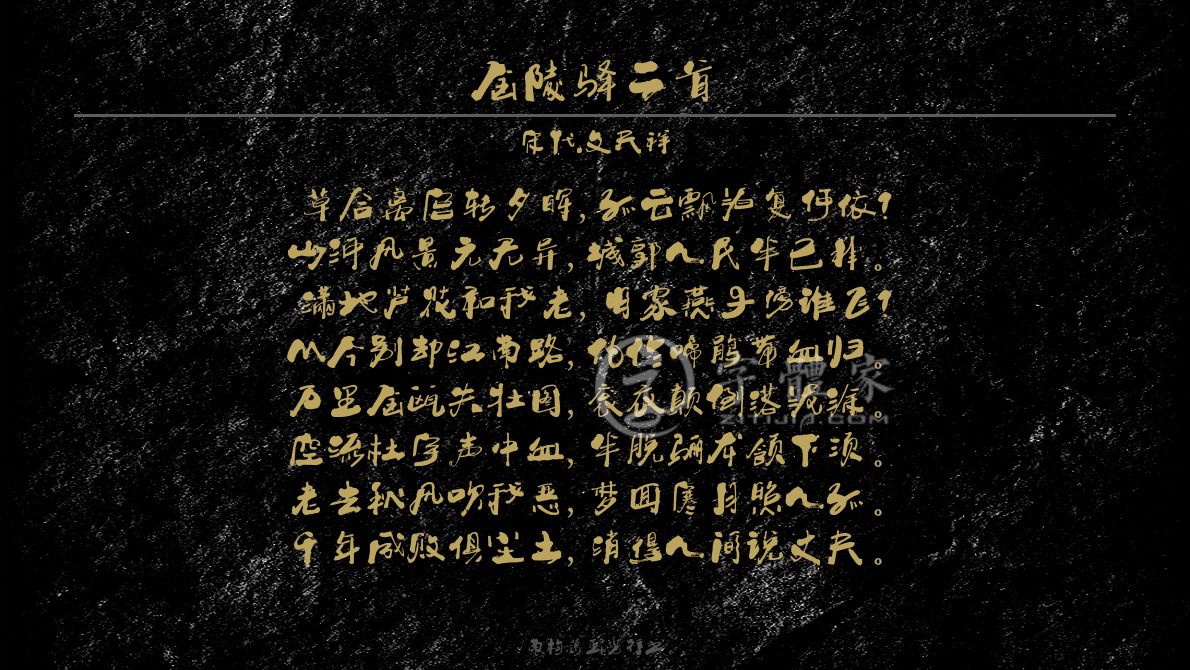 金陵驿二首
宋代.文天祥
草合离宫转夕晖，孤云飘泊复何依？
山河风景元无异，城郭人民半已非。
满地芦花和我老，旧家燕子傍谁飞？
从今别却江南路，化作啼鹃带血归。
万里金瓯失壮图，衮衣颠倒落泥涂。
空流杜宇声中血，半脱骊龙颔下须。
老去秋风吹我恶，梦回寒月照人孤。
千年成败俱尘土，消得人间说丈夫。
字體家
ZITIJIA.COM